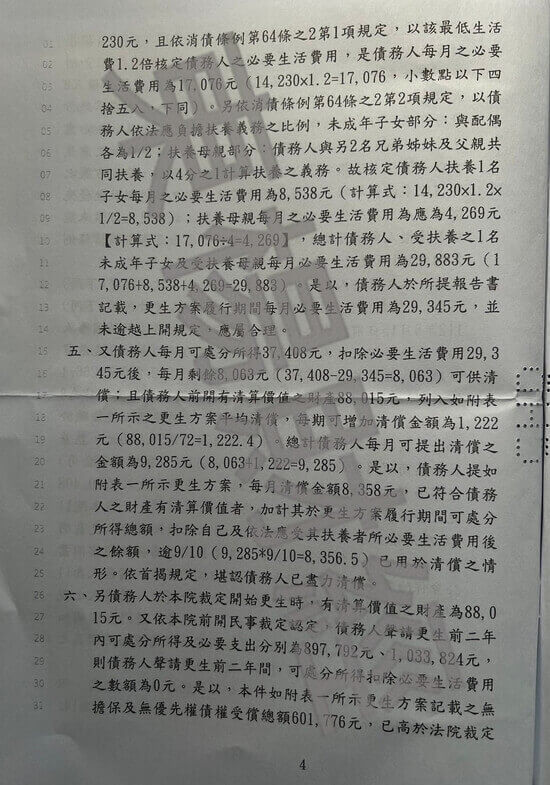 01 230元，且依消債條例第64條之2第1項規定，以該最低生活
02 費1.2倍核定債務人之必要生活費用，是債務人每月之必要
03 生活費用為17,076元（14,230×1.2=17,076，小數點以下四
04 捨五入，下同）。另依消債條例第64條之2第2項規定，以債
05 務人依法應負擔扶養義務之比例，未成年子女部分：與配偶
06 各為1/2；扶養母親部分：債務人與另2名兄弟姊妹及父親共
07 同扶養，以4分之1計算扶養之義務。故核定債務人扶養1名
08 子女每月之必要生活費用為8,538元（計算式：14,230×1.2×
09 1/2=8,538）；扶養母親每月之必要生活費用為應為4,269元
10 【計算式：17,076÷4=4,269】，總計債務人、受扶養之1名
11 未成年子女及受扶養母親每月必要生活費用為29,883元（1
12 7,076+8,538+4,269=29,883）。是以，債務人於所提報告書
13 記載，更生方案履行期間每月必要生活費用為29,345元，並
14 未逾越上開規定，應屬合理。
15 五、又債務人每月可處分所得37,408元，扣除必要生活費用29,3
16 45元後，每月剩餘8,063元（37,408-29,345=8,063）可供清
17 償；且債務人前開有清算價值之財產88,015元，列入如附表
18 一所示之更生方案平均清償，每期可增加清償金額為1,222
19 元（88,015/72=1,222.4）。總計債務人每月可提出清償之
20 金額為9,285元（8,063+1,222=9,285）。是以，債務人提如
21 附表一所示更生方案，每月清償金額8,358元，已符合債務
22 人之財產有清算價值者，加計其於更生方案履行期間可處分
23 所得總額，扣除自己及依法應受其扶養者所必要生活費用後
24 之餘額，逾9/10（9,285*9/10=8,356.5）已用於清償之情
25 形。依首揭規定，堪認債務人已盡力清償。
26 六、另債務人於本院裁定開始更生時，有清算價值之財產為88,0
27 15元。又依本院前開民事裁定認定，債務人聲請更生前二年
28 內可處分所得及必要支出分別為897,792元、1,033,824元，
29 則債務人聲請更生前二年間，可處分所得扣除必要生活費用
30 之數額為0元。是以，本件如附表一所示更生方案記載之無
31 擔保及無優先權債權受償總額601,776元，已高於法院裁定
4